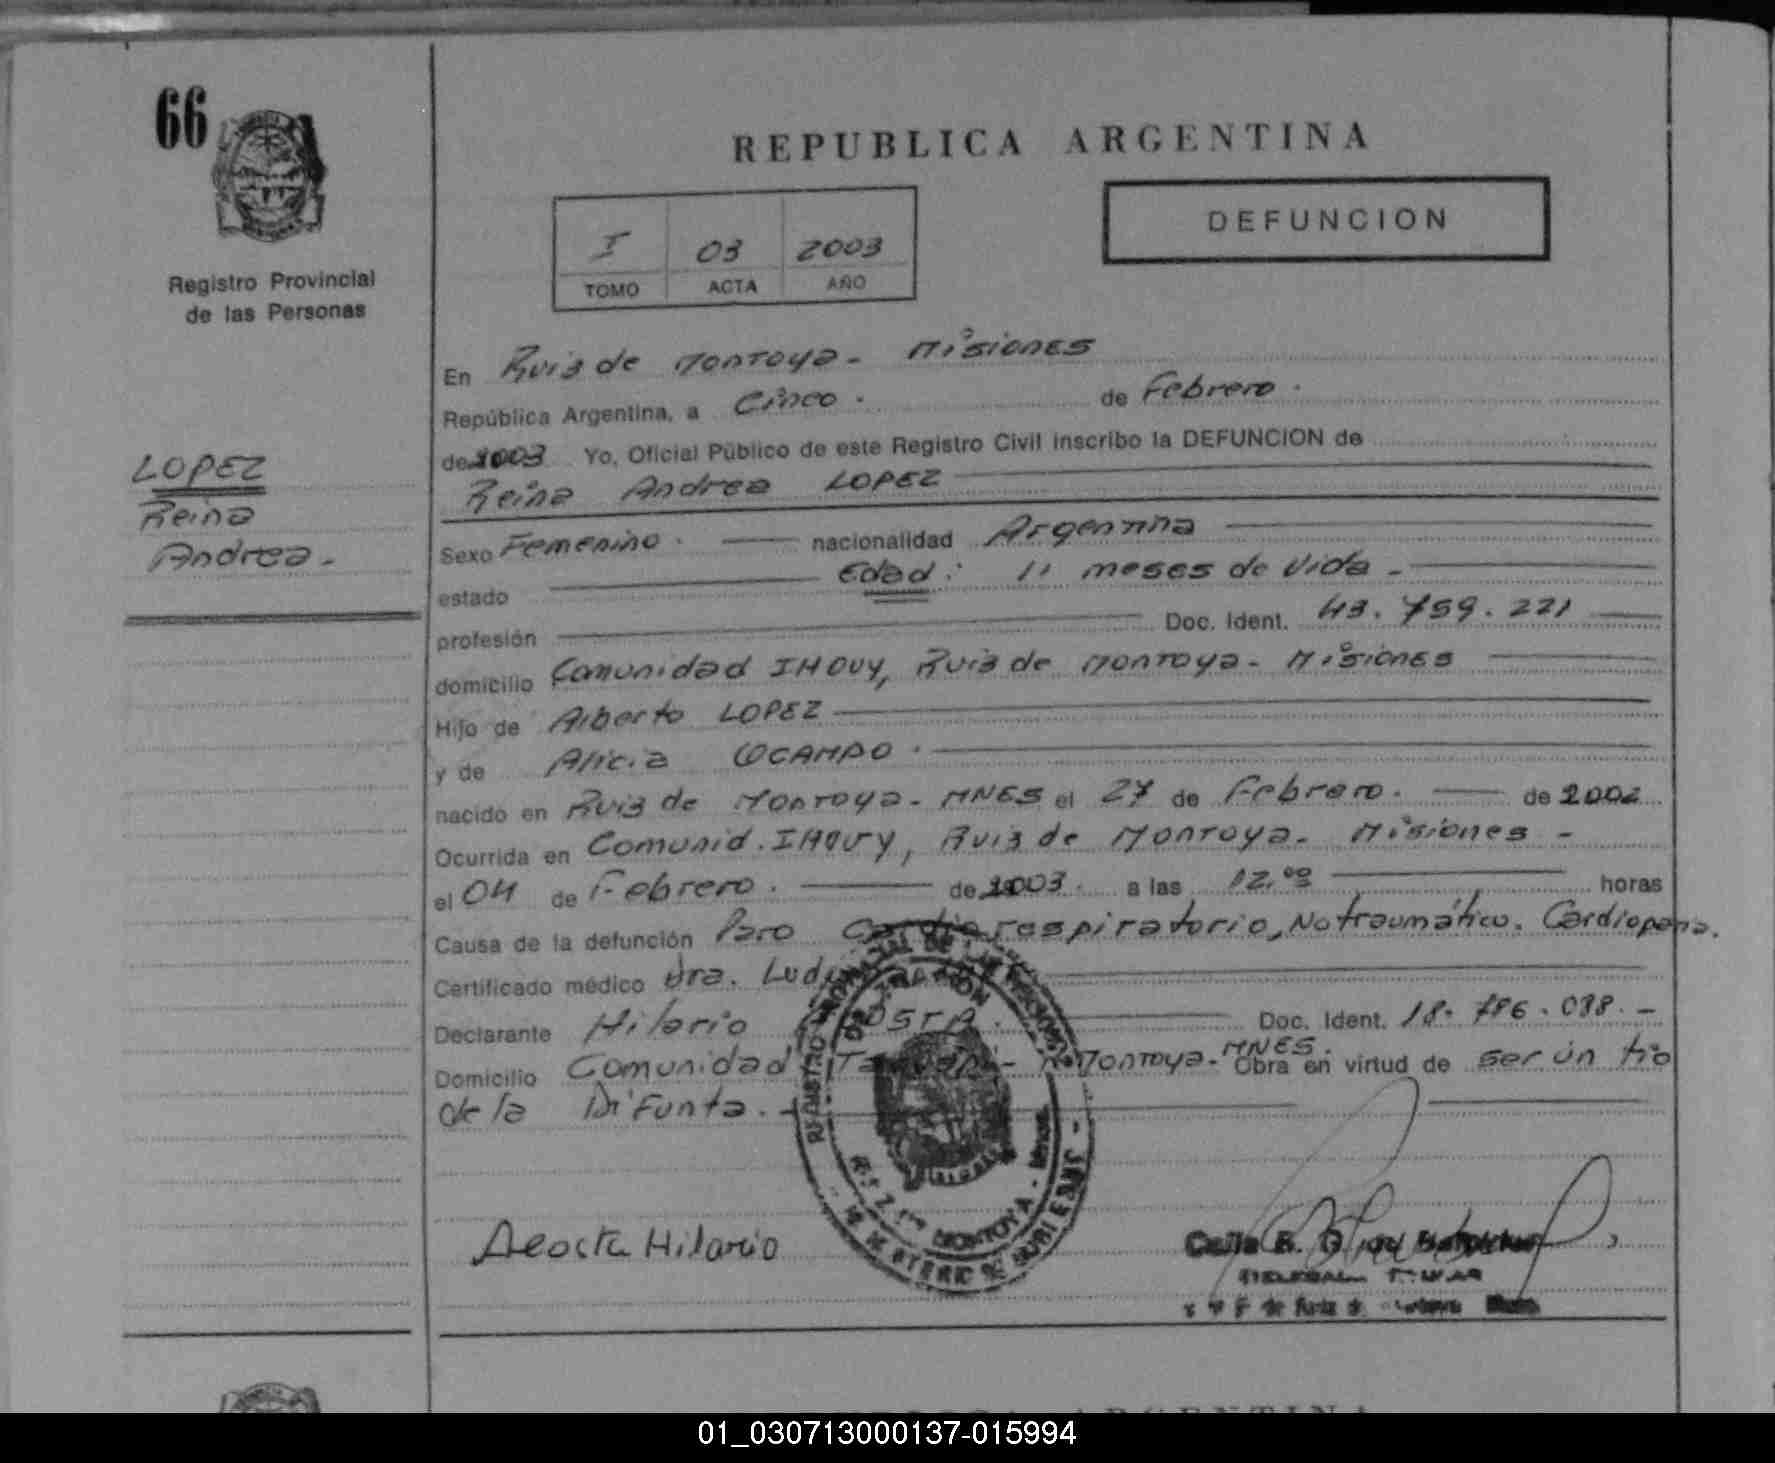 66
REPUBLICA ARGENTINA
DEFUNCION
I 03 2003
TOMO ACTA AÑO
Registro Provincial
de las Personas
LOPEZ
Reina
Andrea.
En Ruiz de Montoya - Misiones
República Argentina, a Cinco. de Febrero.
de 2003 Yo, Oficial Público de este Registro Civil inscribo la DEFUNCION de
Reina Andrea LOPEZ
Sexo Femenino. nacionalidad Argentina
estado Edad: 11 meses de vida -
profesión Doc. Ident. 43.759.221
domicilio Comunidad IHOVY, Ruiz de Montoya - Misiones
Hijo de Alberto LOPEZ
y de Alicia OCAMPO.
nacido en Ruiz de Montoya - MNES el 27 de Febrero. de 2002
Ocurrida en Comunid. IHOVY, Ruiz de Montoya - Misiones -
el 04 de Febrero. de 2003. a las 12,00 horas
Causa de la defunción Paro Cardiorespiratorio, No traumático. Cardiopatía.
Certificado médico Dra.
Declarante Hilario Doc. Ident. 18.786.038.-
Domicilio Comunidad Montoya - MNES. Obra en virtud de ser ún tío
de la Difunta. -
REGISTRO PROVINCIAL DE LAS PERSONAS
MONTOYA - Mnes.
MINISTERIO DE GOBIERNO
Acosta Hilario
01_030713000137-015994